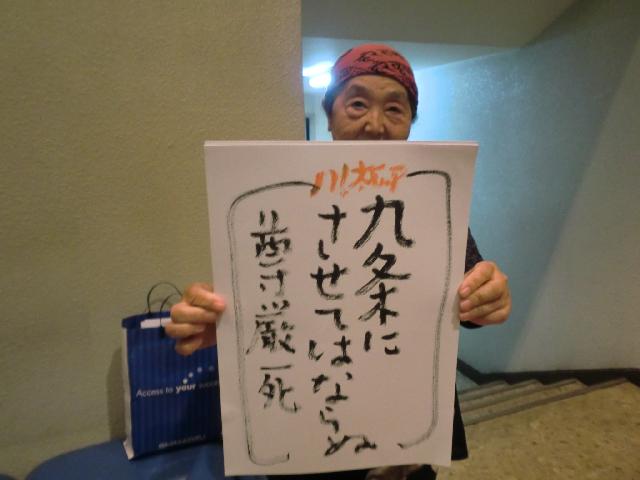 川柳
九条に
させてはならぬ
尊厳死
Access to your